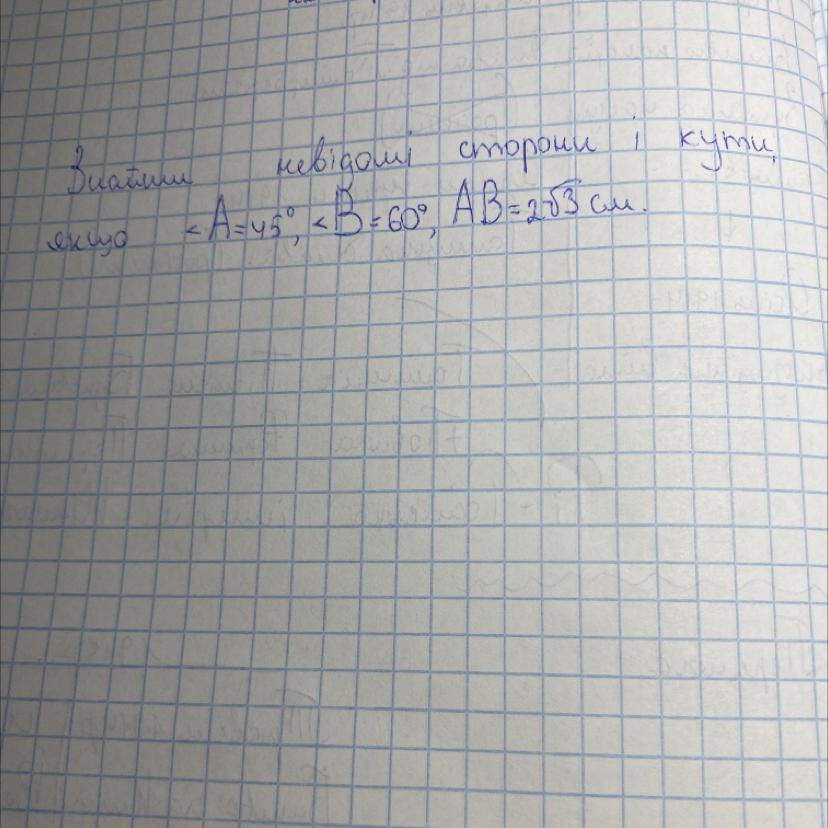 Знайти невідомі сторони і кути,
якщо <A=45°, <B=60°, AB=2√3 см.